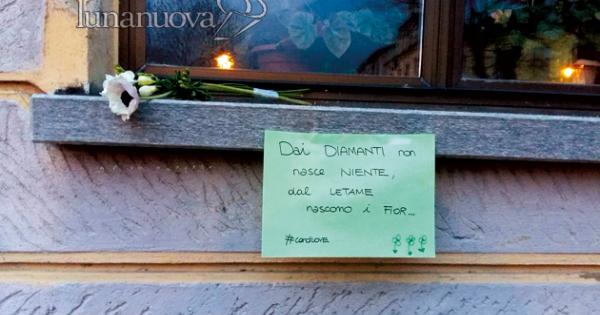 lunanuova
Dai DIAMANTI non
nasce NIENTE,
dal LETAME
nascono i FIOR...